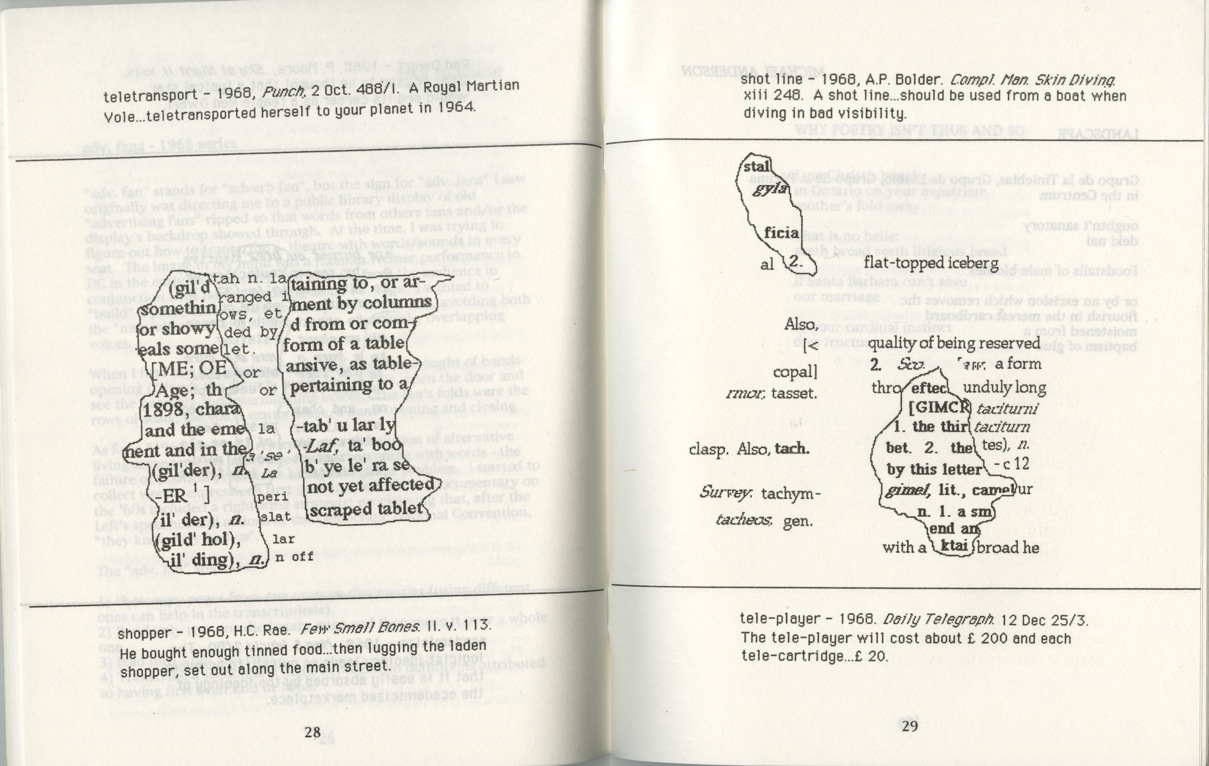 teletransport – 1968, Punch, 2 Oct. 488/1. A Royal Martian
Vole...teletransported herself to your planet in 1964.
(gil'd tah n. la taining to, or ar-
somethin ranged i ment by columns
or showy ows, et d from or com-
ded by form of a table
eals some let. ansive, as table-
[ME; OE or pertaining to a
Age; th or
1898, chara
and the eme la -tab' u lar ly
ment and in the a 'se' Laf, ta' boo
(gil'der), n. La b' ye le' ra se
-ER ' ] peri not yet affected
il' der), n. slat scraped tablet
(gild' hol), lar
il' ding), n. n off
shopper – 1968, H.C. Rae. Few Small Bones. II. v. 113.
He bought enough tinned food...then lugging the laden
shopper, set out along the main street.
28
shot line – 1968, A.P. Bolder. Compl. Man. Skin Diving.
xiii 248. A shot line...should be used from a boat when
diving in bad visibility.
stal
gyla
ficia
al 2. flat-topped iceberg
Also,
[< quality of being reserved
2. a form
copal]
thro effec unduly long
rmor, tasset.
[GIMCR taciturni
1. the thir taciturn
clasp. Also, tach. bet. 2. the tes), n.
by this letter -c 12
Survey. tachym- gimel, lit., camel ur
n. 1. a sm
tacheos, gen.
end an
with a ktai broad he
tele-player – 1968. Daily Telegraph. 12 Dec 25/3.
The tele-player will cost about £ 200 and each
tele-cartridge...£ 20.
29